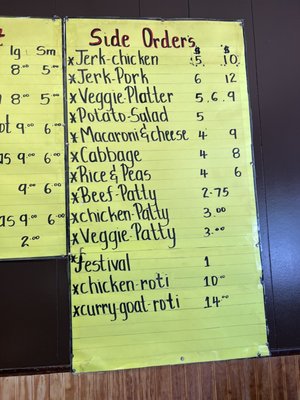 lg. Sm
8⁰⁰ 5⁰⁰
8⁰⁰ 5⁰⁰
9⁰⁰ 6⁰⁰
as 9⁰⁰ 6⁰⁰
9⁰⁰ 6⁰⁰
as 9⁰⁰ 6⁰⁰
2⁰⁰
Side Orders
$ $
x Jerk-chicken 5 10
x Jerk-Pork 6 12
x Veggie-Platter 5.6.9
x Potato-Salad 5
x Macaroni & cheese 4 9
x Cabbage 4 8
x Rice & Peas 4 6
x Beef-Patty 2.75
x chicken-Patty 3.00
x Veggie-Patty 3.⁰⁰
x festival 1
x chicken-roti 10⁰⁰
x curry-goat-roti 14⁰⁰